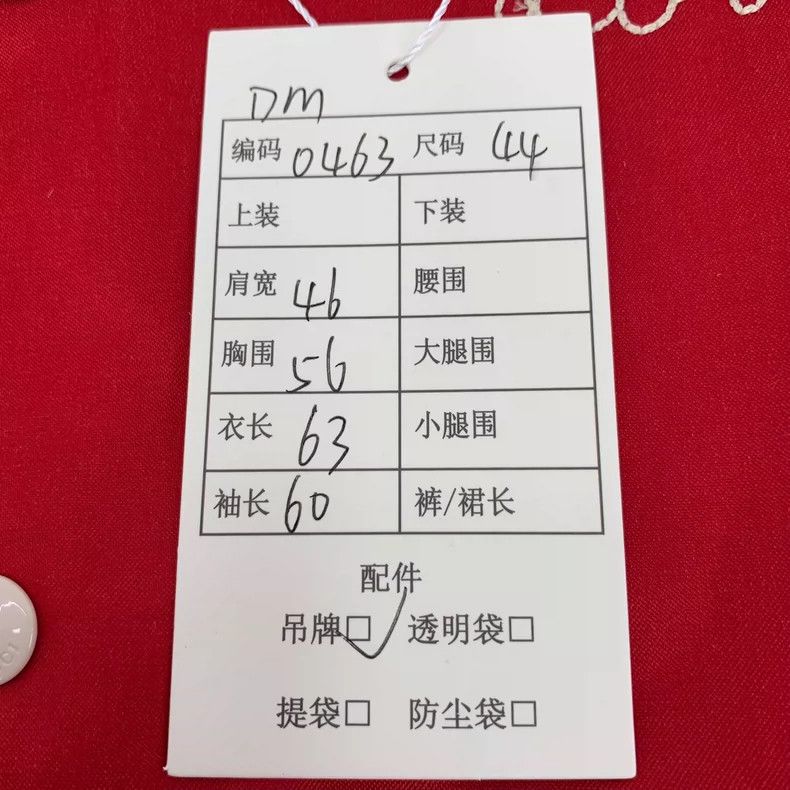 DM
编码 0463 尺码 44
上装 下装
肩宽 46 腰围
胸围 56 大腿围
衣长 63 小腿围
袖长 60 裤/裙长
配件
吊牌☑ 透明袋□
提袋□ 防尘袋□